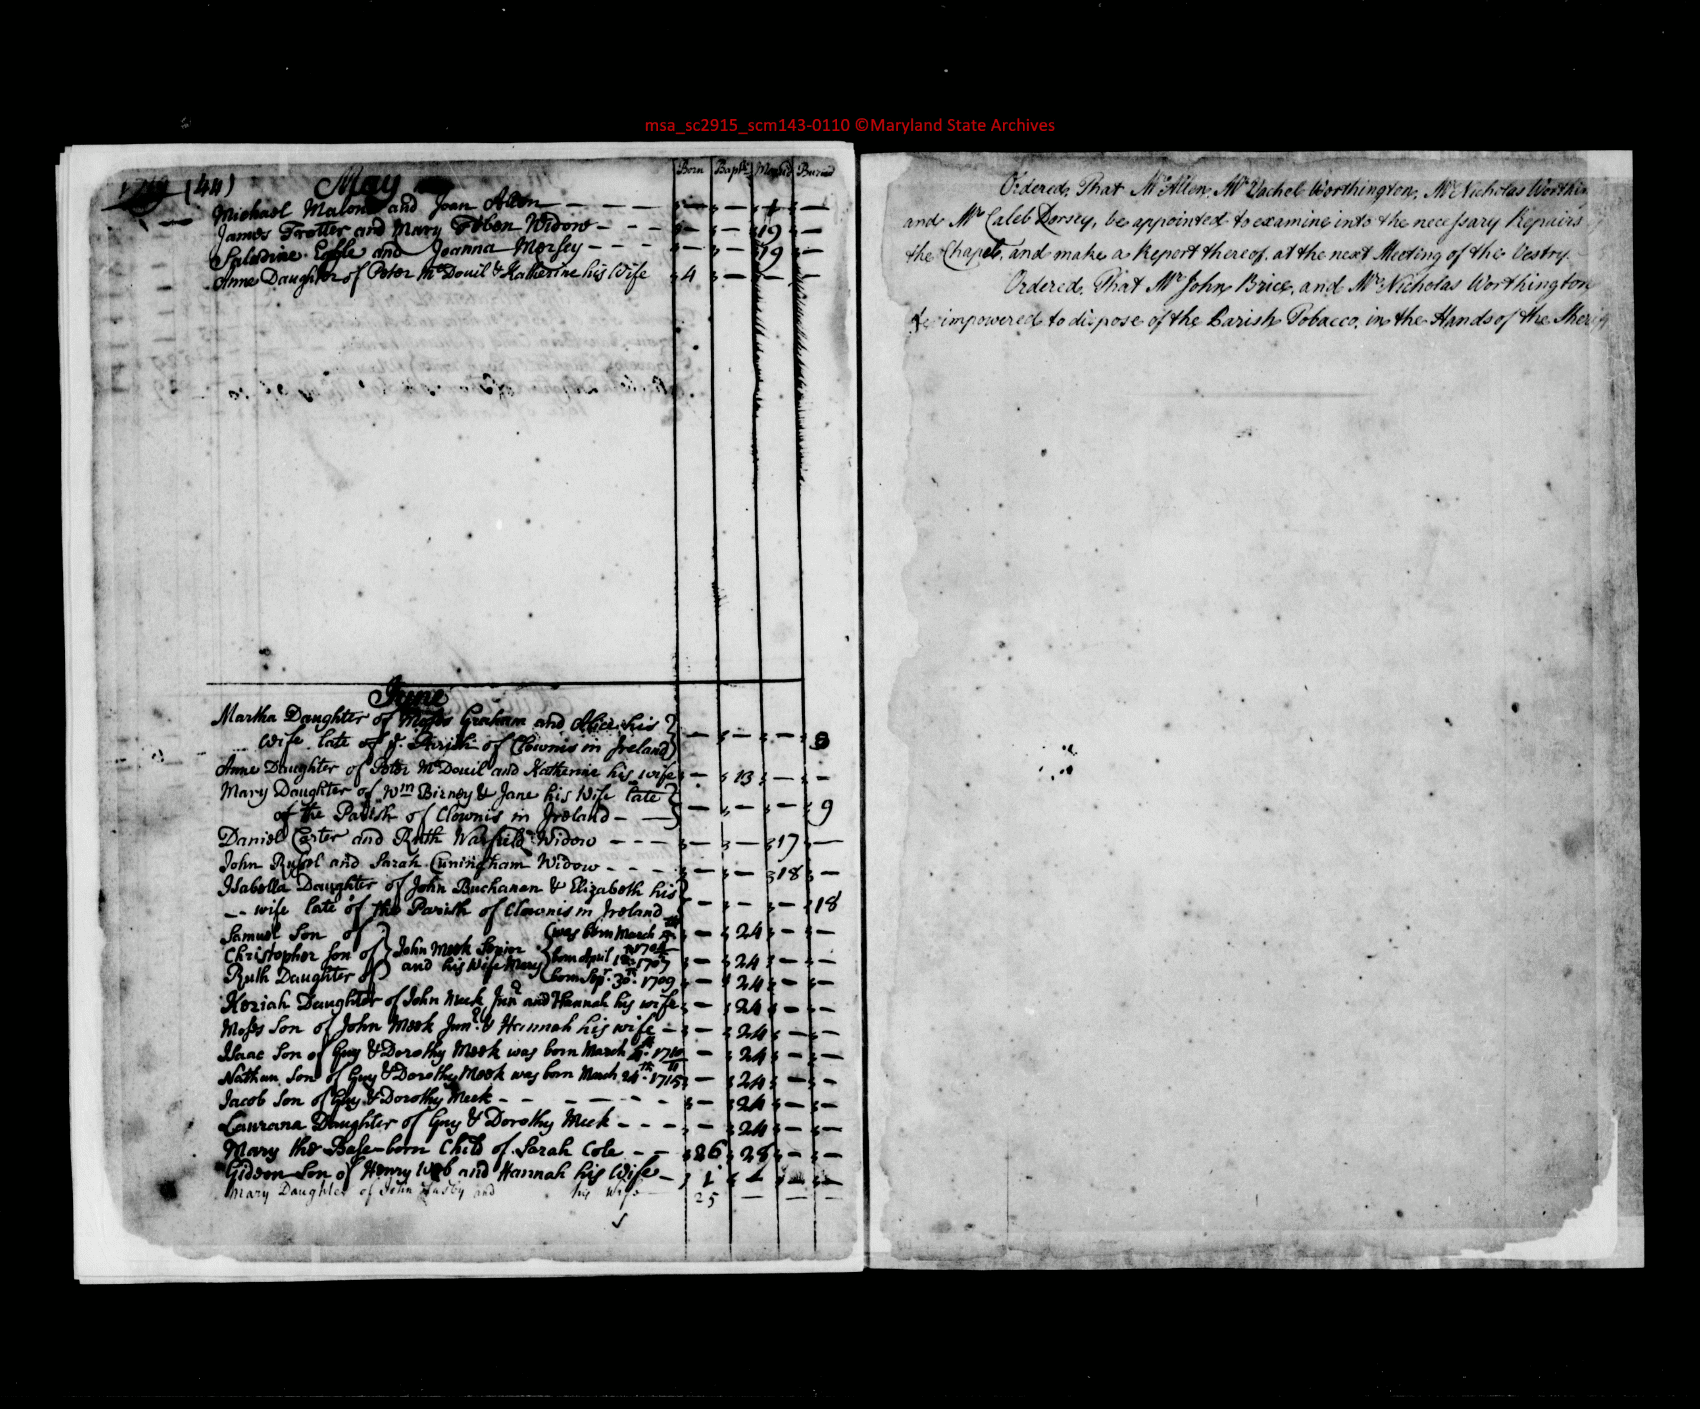 msa_sc2915_scm143-0110 ©Maryland State Archives
(44) May Born Bapt. Married Buried
Michael Malone and Joan Allen — — — — — — 1 —
James Trotter and Mary Toben Widow - - - — — 19 —
Saladine Eagle and Joanna Morsey - - - — — 19 —
Anne Daughter of Peter Mc.Douil & Katherine his Wife 4 — — —
June
Martha Daughter of Moses Graham and Alice his
Wife late of ye. Parish of Clownis in Ireland — — — 8
Anne Daughter of Peter Mc.Douil and Katherine his wife — 13 — —
Mary Daughter of Wm Birney & Jane his Wife late
of the Parish of Clownis in Ireland — — — — 9
Daniel Carter and Ruth Warfield Widow - - - — — 17 —
John and Sarah Cuningham Widow - - - — — 18 —
Isabella Daughter of John Buchanan & Elizabeth his
-- wife late of the Parish of Clownis in Ireland — — — 18
Samuel Son of was born March — 24 — —
Christopher Son of John Meek Senior born April 1707 — 24 — —
Ruth Daughter of and his Wife Mary born Sepr. 30th. 1709 — 24 — —
Keziah Daughter of John Meek Junr and Hannah his wife — 24 — —
Moses Son of John Meek Junr. & Hannah his wife — — 24 — —
Isaac Son of Guy & Dorothy Meek was born March 1710 — 24 — —
Nathan Son of Guy & Dorothy Meek was born March 24th. 1715 — 24 — —
Jacob Son of Guy & Dorothy Meek - - - — — 24 — —
Laurana Daughter of Guy & Dorothy Meek - - - — 24 — —
Mary the Base-born Child of Sarah Cole - — 26 28 — —
Gideon Son of Henry Web and Hannah his Wife — 1 — — —
Mary Daughter of John and his Wife — 25 — — —
Ordered, That Mr. Allen, Mr Vachel Worthington, Mr. Nicholas
and Mr Caleb Dorsey, be appointed to examine into the necessary Repairs
the Chapel, and make a Report thereof, at the next Meeting of the Vestry.
Ordered, That Mr John Brice, and Mr. Nicholas Worthington
be impowered to dispose of the Parish Tobacco, in the Hands of the